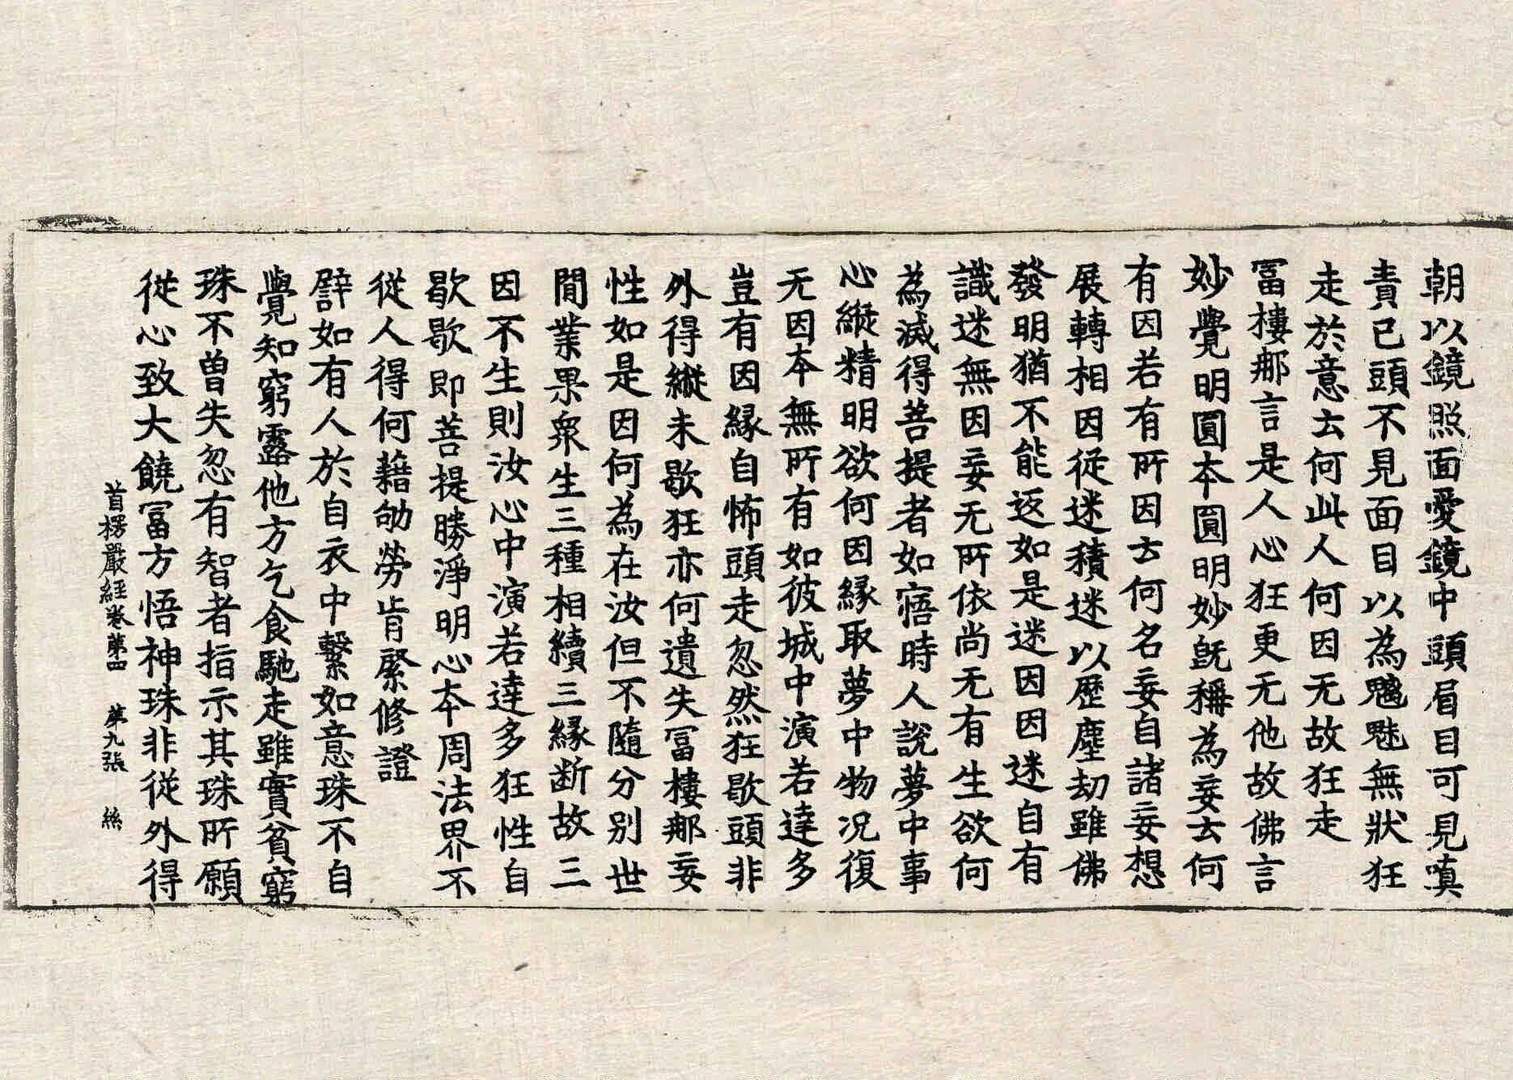 朝以鏡照面愛鏡中頭眉目可見嗔
責已頭不見面目以為魑魅無狀狂
走於意云何此人何因无故狂走
冨樓那言是人心狂更无他故佛言
妙覺明圓本圓明妙旣稱為妄云何
有因若有所因云何名妄自諸妄想
展轉相因従迷積迷以歷塵劫雖佛
發明猶不能返如是迷因因迷自有
識迷無因妄无所依尚无有生欲何
為滅得菩提者如寤時人說夢中事
心縱精明欲何因緣取夢中物况復
无因本無所有如彼城中演若達多
豈有因緣自怖頭走忽然狂歇頭非
外得縱未歇狂亦何遺失冨樓那妄
性如是因何為在汝但不隨分別世
間業果衆生三種相續三緣断故三
因不生則汝心中演若達多狂性自
歇歇即菩提勝淨明心本周法界不
従人得何藉劬勞肯綮修證
譬如有人於自衣中繫如意珠不自
覺知窮露他方乞食馳走雖實貧窮
珠不曽失忽有智者指示其珠所願
従心致大饒冨方悟神珠非従外得
首楞嚴経卷第四 第九張 絲